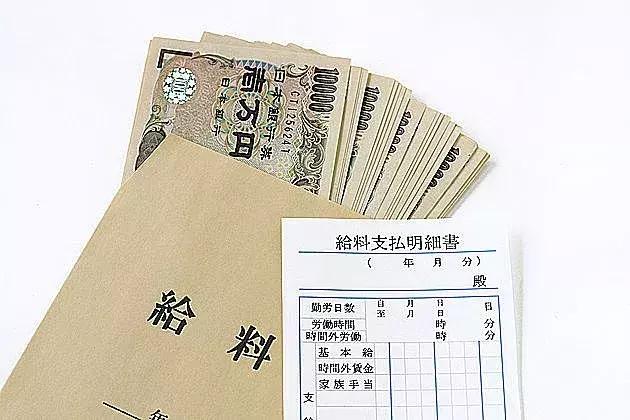 10000
日本銀行券
壱万円
日本銀行
CT125624T
10000
10000
給料
年
給料支払明細書
( 年 月 分)
殿
勤労日数 自 月 日 至 月 日 日
労働時間 時 分
時間外労働 時 分
基本給
時間外賃金
家族手当
支
給